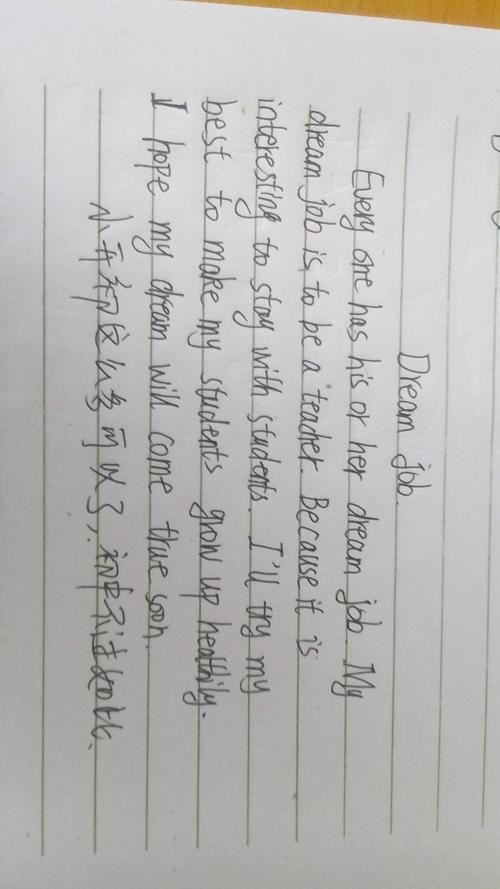 Dream job.
Every one has his or her dream job. My
dream job is to be a teacher. Because it is
interesting to stay with students. I'll try my
best to make my students grow up heathily.
I hope my dream will come true soon.
小升初这么多可以了，初中不过如此.